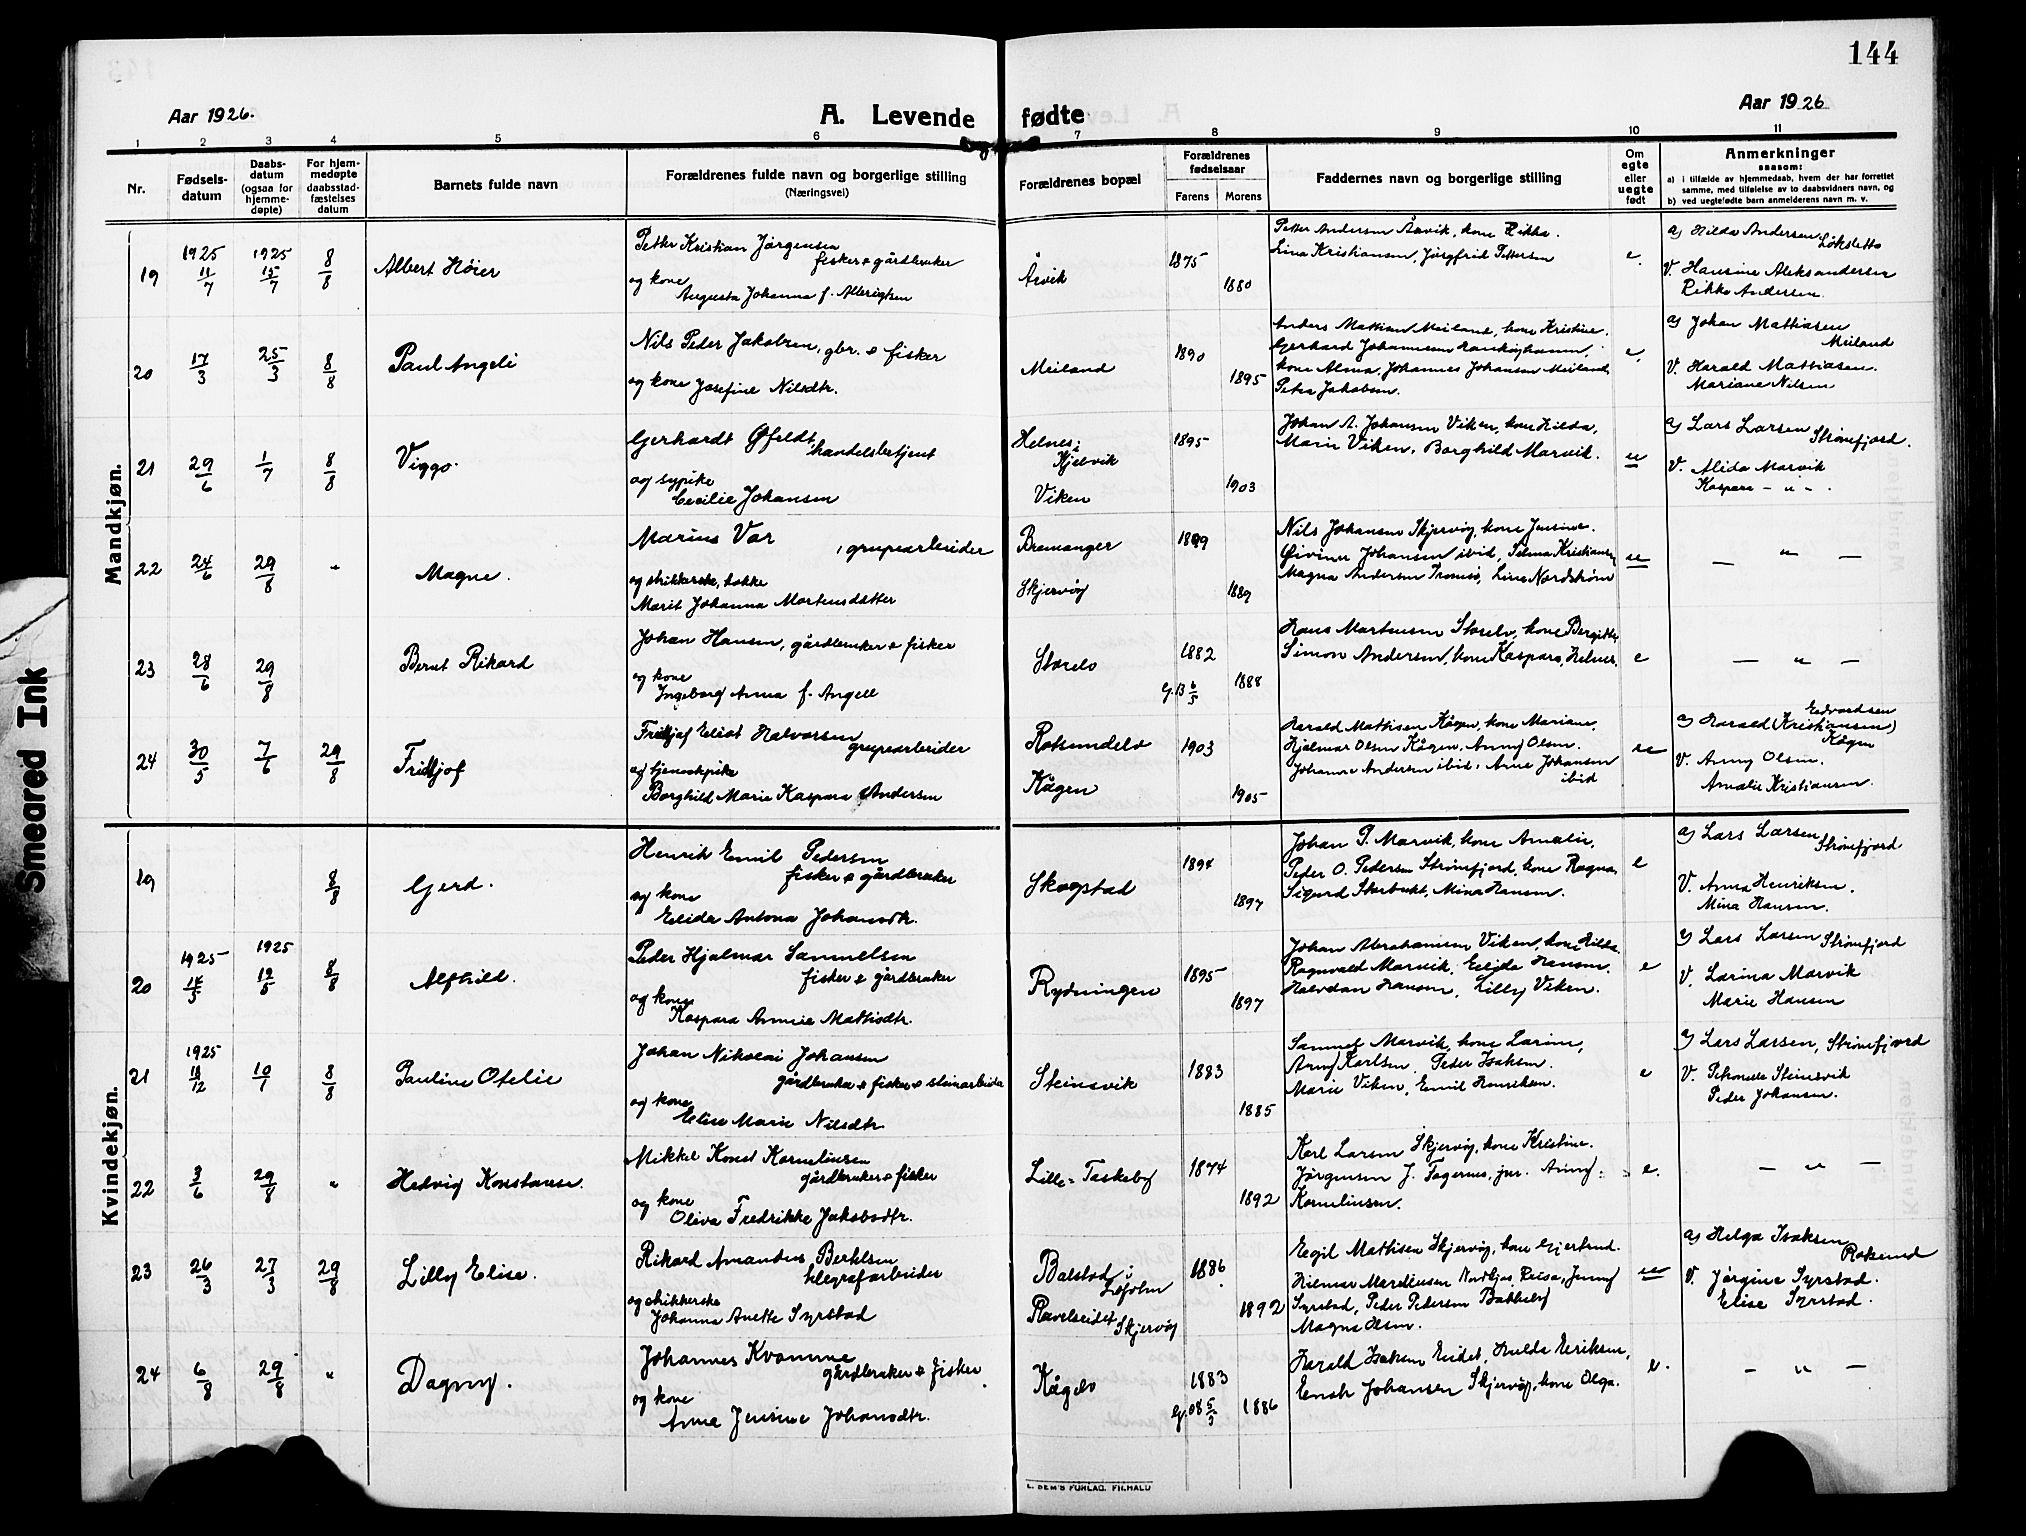 144
Aar 1926.
A. Levende fødte
Aar 1926
1 2 3 4 5 6 7 8 9 10 11
Nr.
Fødsels-
datum
Daabs-
datum
(ogsaa for
hjemme-
døpte)
For hjem-
medøpte
daabsstad-
fæstelses
datum
Barnets fulde navn
Forældrenes fulde navn og borgerlige stilling
(Næringsvei)
Forældrenes bopæl
Forældrenes
fødselsaar
Farens Morens
Faddernes navn og borgerlige stilling
Om
egte
eller
uegte
født
Anmerkninger
saasom:
a) i tilfælde av hjemmedaab, hvem der har forrettet
samme, med tilføielse av to daabsvidners navn, og
b) ved uegtefødte barn anmelderens navn m. v.
Mandkjøn.
19 1925 11/7 1925 15/7 8/8 Albert Høier
Petter Kristian Jørgensen
fisker & gårdbruker
og kone
Augusta Johanna f. Albrigtsen
Årvik 1875 1880
Petter Andersen Årvik, kone Rikka.
Lina Kristiansen, Jørgfrid Pettersen
e.
a) Hilda Andersen, Løkslette
V. Hansine Aleksandersen
Rikka Andersen.
20 17/3 25/3 8/8 Paul Angell
Nils Peder Jakobsen, gbr. & fisker
og kone Josefine Nilsdtr.
Meiland 1890 1895
Anders Mathisen Meiland, kone Kristine.
Gerhard Johannesen
kone Alma, Johannes Johansen Meiland,
Petra Jakobsen.
e.
a) Johan Mathiasen
Meiland
V. Harald Mathiasen.
Mariane Nilsen
21 29/6 1/7 8/8 Viggo.
Gerhardt Øfeldt,
handelsbetjent
og sypike
Cecilie Johansen
Helnes:
Kjelvik
Viken 1895 1903
Johan A. Johansen Viken, kone Hilda,
Marie Viken, Borghild Marvik.
ue
a) Lars Larsen Strømfjord.
V. Alida Marvik
Kaspara – " – .
22 24/6 29/8 " Magne.
Marius Vor
, grupearbeider
og strikkerske, taske
Marit Johanna Mortensdatter
Bremanger
Skjervøy 1899 1889
Nils Johansen Skjervøy, kone Jensine.
Eivinn Johansen ibid, Selma Kristiansen
Magna Andersen Tromsø, Lina Nordstrøm
ue
— " —
23 28/6 29/8 Bernt Rikard
Johan Hansen, gårdbruker & fisker
og kone
Ingeborg Anna f. Angell
Storelv 1882 1888
G. 13 6/5
Hans Martinsen Storelv, kone Bergitte,
Simon Andersen, kone Kaspara, Helnes.
e
— " —
24 30/5 7/6 29/8 Fridtjof
Fridtjof Eliot Halvorsen
grupearbeider
og tjenestepike
Borghild Marie Kaspara Andersen
Rotsundelv
Kågen 1903 1905
Harald Mathisen Kågen, kone Mariane,
Hjalmar Olsen Kågen, Anny Olsen.
Johanne Andersen ibid, Arne Johansen
ibid
ue
Edvardsen
a) Harald (Kristiansen)
Kågen
V. Anny Olsen.
Amalie Kristiansen.
Kvindekjøn.
19 8/8 Gerd.
Henrik Emil Pedersen
fisker & gårdbruker
og kone
Elida Antona Johansdtr.
Skogstad 1894 1897
Johan P. Marvik, kone Amalie,
Peder O. Pedersen Strømfjord, kone Ragna.
Sigurd Storbukt, Mina Hansen.
e
a) Lars Larsen
Strømfjord
V. Anna Henriksen.
Mina Hansen.
20 1925 1925 8/8 Alfhild.
Peder Hjalmar Samuelsen
fisker & gårdbruker
og kone
Kaspara Annie Mathisdtr.
Rydningen 1895 1897
Johan Abrahamsen Viken, kone Hilda.
Ragnvald Marvik, Elida Hansen.
Halvdan Hansen, Lilly Viken.
e
a) Lars Larsen Strømfjord
V. Larina Marvik
Marie Hansen
21 1925 18/12 10/1 8/8 Pauline Otelie
Johan Nikolai Johansen
gårdbruker & fisker & stenarbeider
og kone
Elise Marie Nilsdtr.
Steinsvik 1883 1885
Samuel Marvik, kone Larine,
Arny Karlsen, Peder Isaksen.
Marie Viken, Emil Henriksen.
e
a) Lars Larsen, Strømfjord
V. Petronelle Steinsvik
Peder Johansen.
22 3/6 29/8 " Hedvig Konstanse.
Mikkel Konst Korneliussen
gårdbruker & fisker
og kone
Oliva Fredrikke Jakobsdtr.
Lille-Taskeby 1874 1892
Karl Larsen Skjervøy, kone Kristine.
Jørgensen J. Fagernes, jnr. Anny
Korneliussen.
e.
— " —
23 26/3 27/3 29/8 Lilly Elise.
Rikard Amandus Bertelsen
telegrafarbeider
og strikkerske
Johanna Anette Syrstad
Balstad i
Lofoten
Ravelseidet Skjervøy 1886 1892
Eigil Mathisen Skjervøy, kone Gjertrud.
Hilmar Mardinsen Nordkjos, Reisa, Jenny
Syrstad, Peder Pedersen Bakkeby
Magna Olsen.
ue
a) Helga Isaksen
Rotsund
V. Jørgine Syrstad.
Elise Syrstad.
24 6/8 29/8 " Dagny.
Johannes Kvamme
gårdbruker & fisker
og kone
Anna Jensine Johansdtr.
Kågelv 1883 1886
G. 08 5/5
Harald Isaksen Eidet, Hulda Eriksen,
Enok Johansen Skjervøy, kone Olga.
e.
— " —
Smeared Ink
E. SEM'S FORLAG, FR.HALD